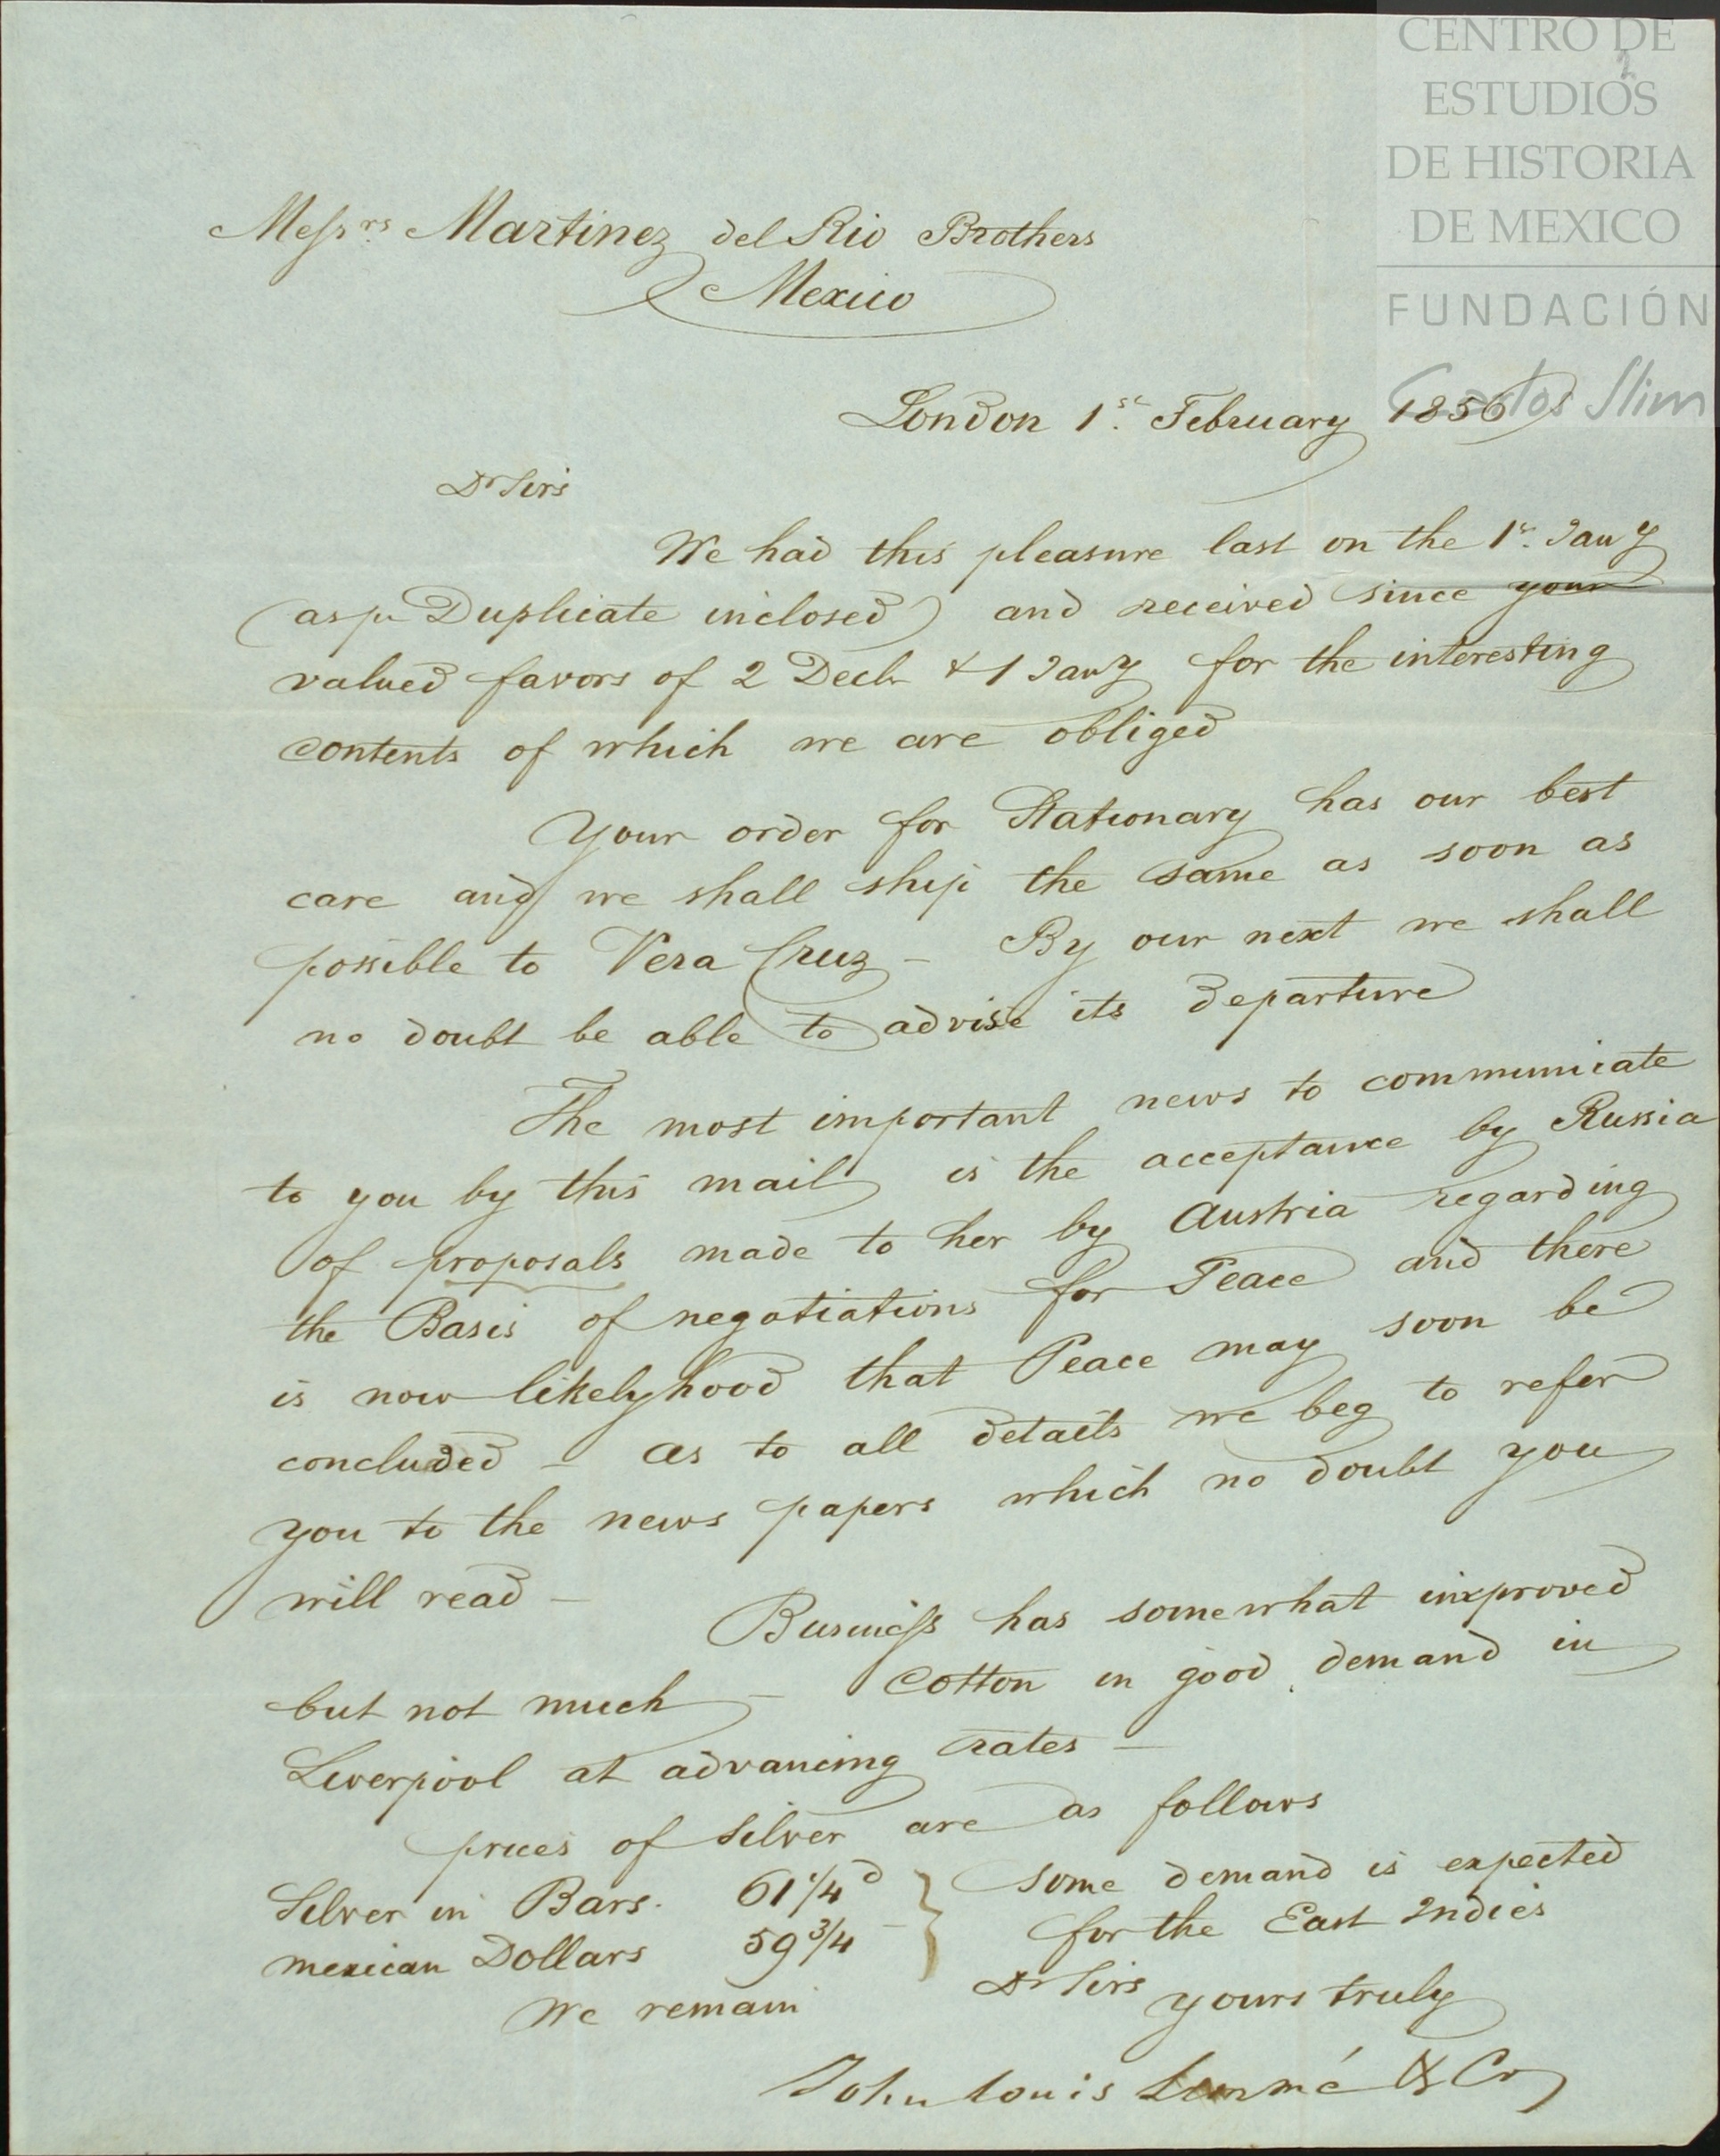 CENTRO DE
ESTUDIOS
DE HISTORIA
DE MEXICO
FUNDACIÓN
Carlos Slim
2
Messrs. Martinez del Rio Brothers
Mexico
London 1st. February 1856
Dr Sirs
We had this pleasure last on the 1st. Jany
(as pr Duplicate inclosed) and received since your
valued favors of 2 Decbr & 1 Jany for the interesting
contents of which we are obliged
Your order for Stationary has our best
care and we shall ship the same as soon as
possible to Vera Cruz – By our next we shall
no doubt be able to advise its departure
The most important news to communicate
to you by this mail is the acceptance by Russia
of proposals made to her by Austria regarding
the Basis of negotiations for Peace and there
is now likelyhood that Peace may soon be
concluded – as to all details we beg to refer
you to the news papers which no doubt you
will read –
Business has somewhat improved
but not much – Cotton in good demand in
Liverpool at advancing rates –
prices of Silver are as follows
Silver in Bars. 61 1/4 d } Some demand is expected
mexican Dollars 59 3/4 – for the East Indies
We remain Dr Sirs yours truly
John Louis Lemmé & Co